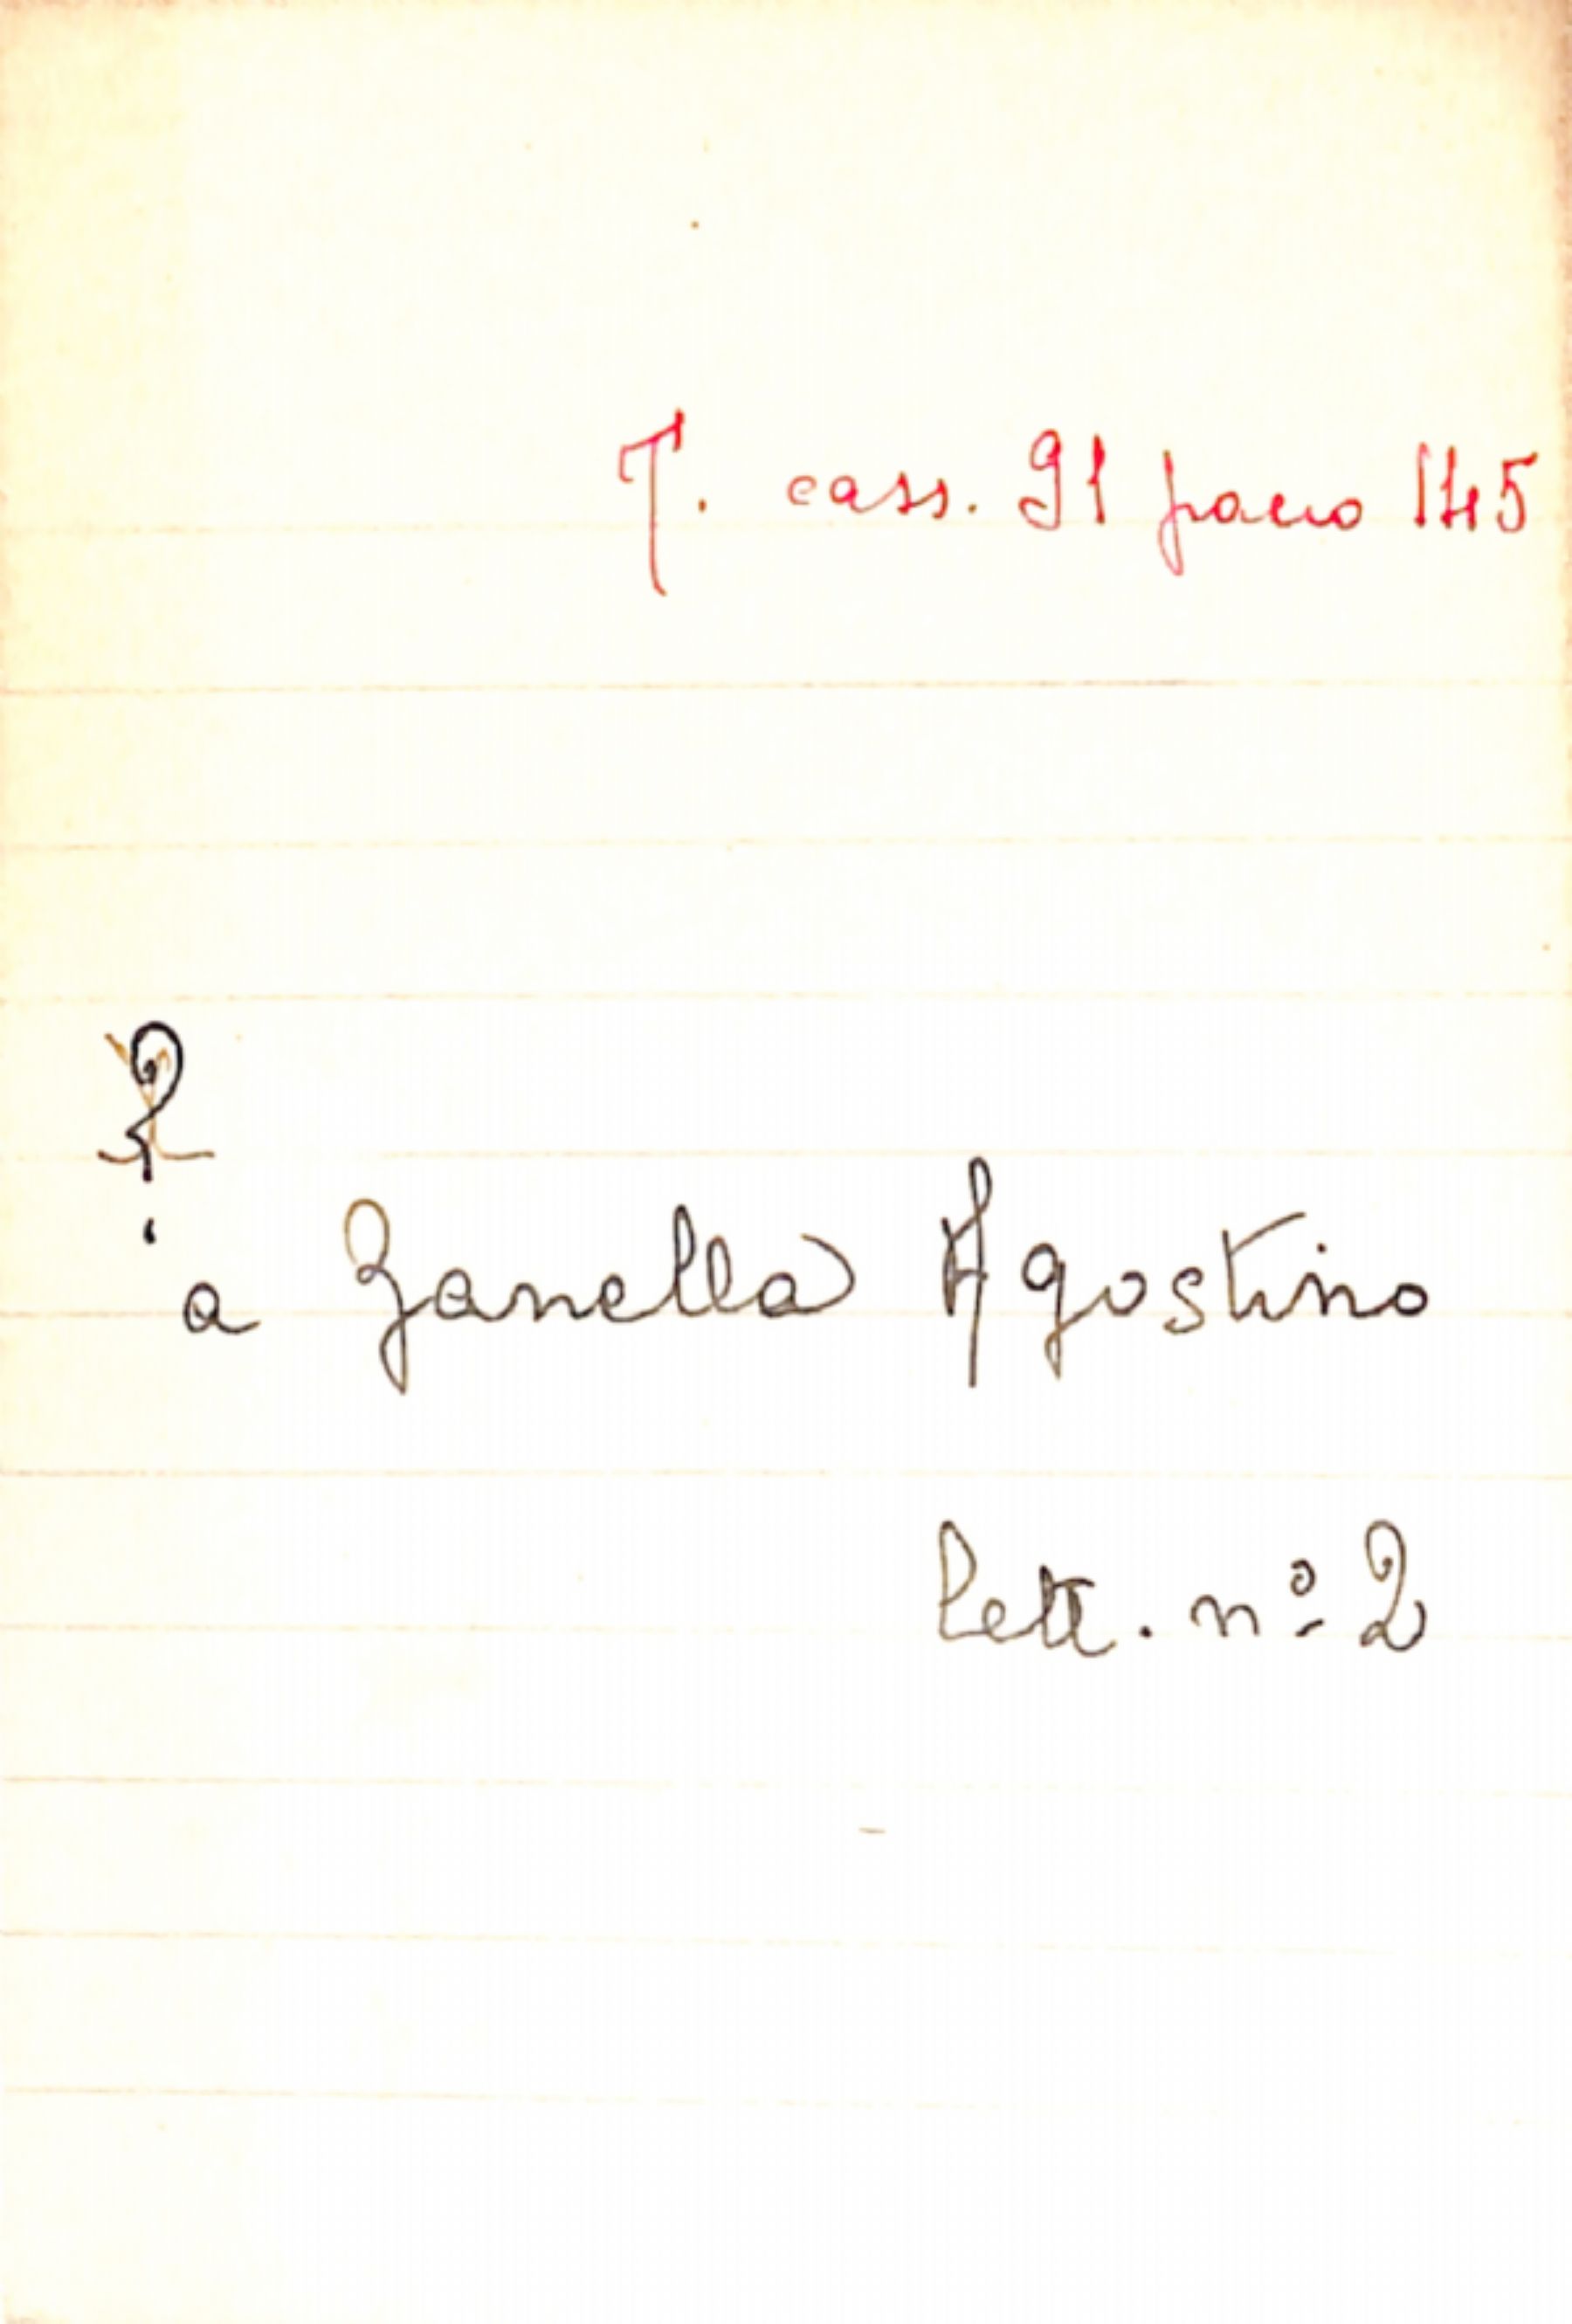 T. cass. 91 pacco 145
?
a Zanella Agostino
lett. nº 2